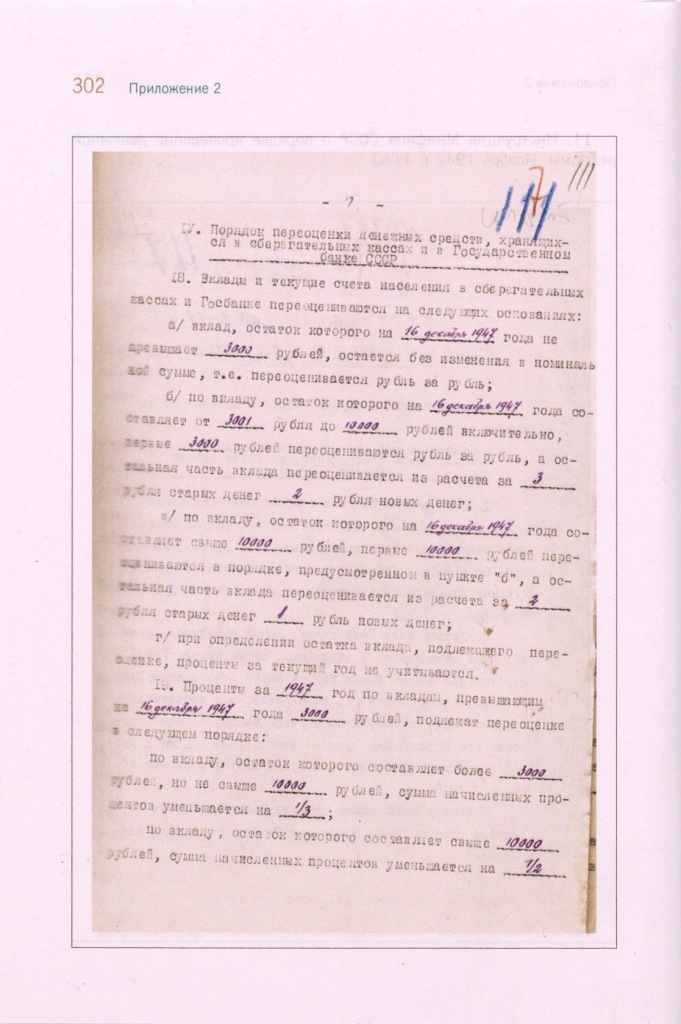 302 Приложение 2
111
- 7 -
IУ. Порядок переоценки денежных средств, хранящих-
ся в сберегательных кассах и в Государственном
банке СССР
18. Вклады и текущие счета населения в сберегательных
кассах и Госбанке переоцениваются на следующих основаниях:
а/ вклад, остаток которого на 16 декабря 1947 года не
превышает 3000 рублей, остается без изменения в номиналь
ной сумме, т.е. переоценивается рубль за рубль;
б/ по вкладу, остаток которого на 16 декабря 1947 года со-
ставляет от 3001 рубля до 10000 рублей включительно,
первые 3000 рублей переоцениваются рубль за рубль, а ос-
тальная часть вклада переоценивается из расчета за 3
рубля старых денег 2 рубля новых денег;
в/ по вкладу, остаток которого на 16 декабря 1947 года со-
ставляет свыше 10000 рублей, первые 10000 рублей пере-
оцениваются в порядке, предусмотренном в пункте "б", а ос-
тальная часть вклада переоценивается из расчета за 2
рубля старых денег 1 рубль новых денег;
г/ при определении остатка вклада, подлежащего пере-
оценке, проценты за текущий год не учитываются.
19. Проценты за 1947 год по вкладам, превышающим
на 16 декабря 1947 года 3000 рублей, подлежат переоценке
в следующем порядке:
по вкладу, остаток которого составляет более 3000
рублей, но не свыше 10000 рублей, сумма начисленных про-
центов уменьшается на 1/3;
по вкладу, остаток которого составляет свыше 10000
рублей, сумма начисленных процентов уменьшается на 1/2